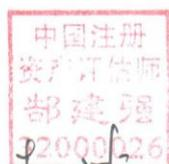 中国注册
资产评估师
部建强
22000026